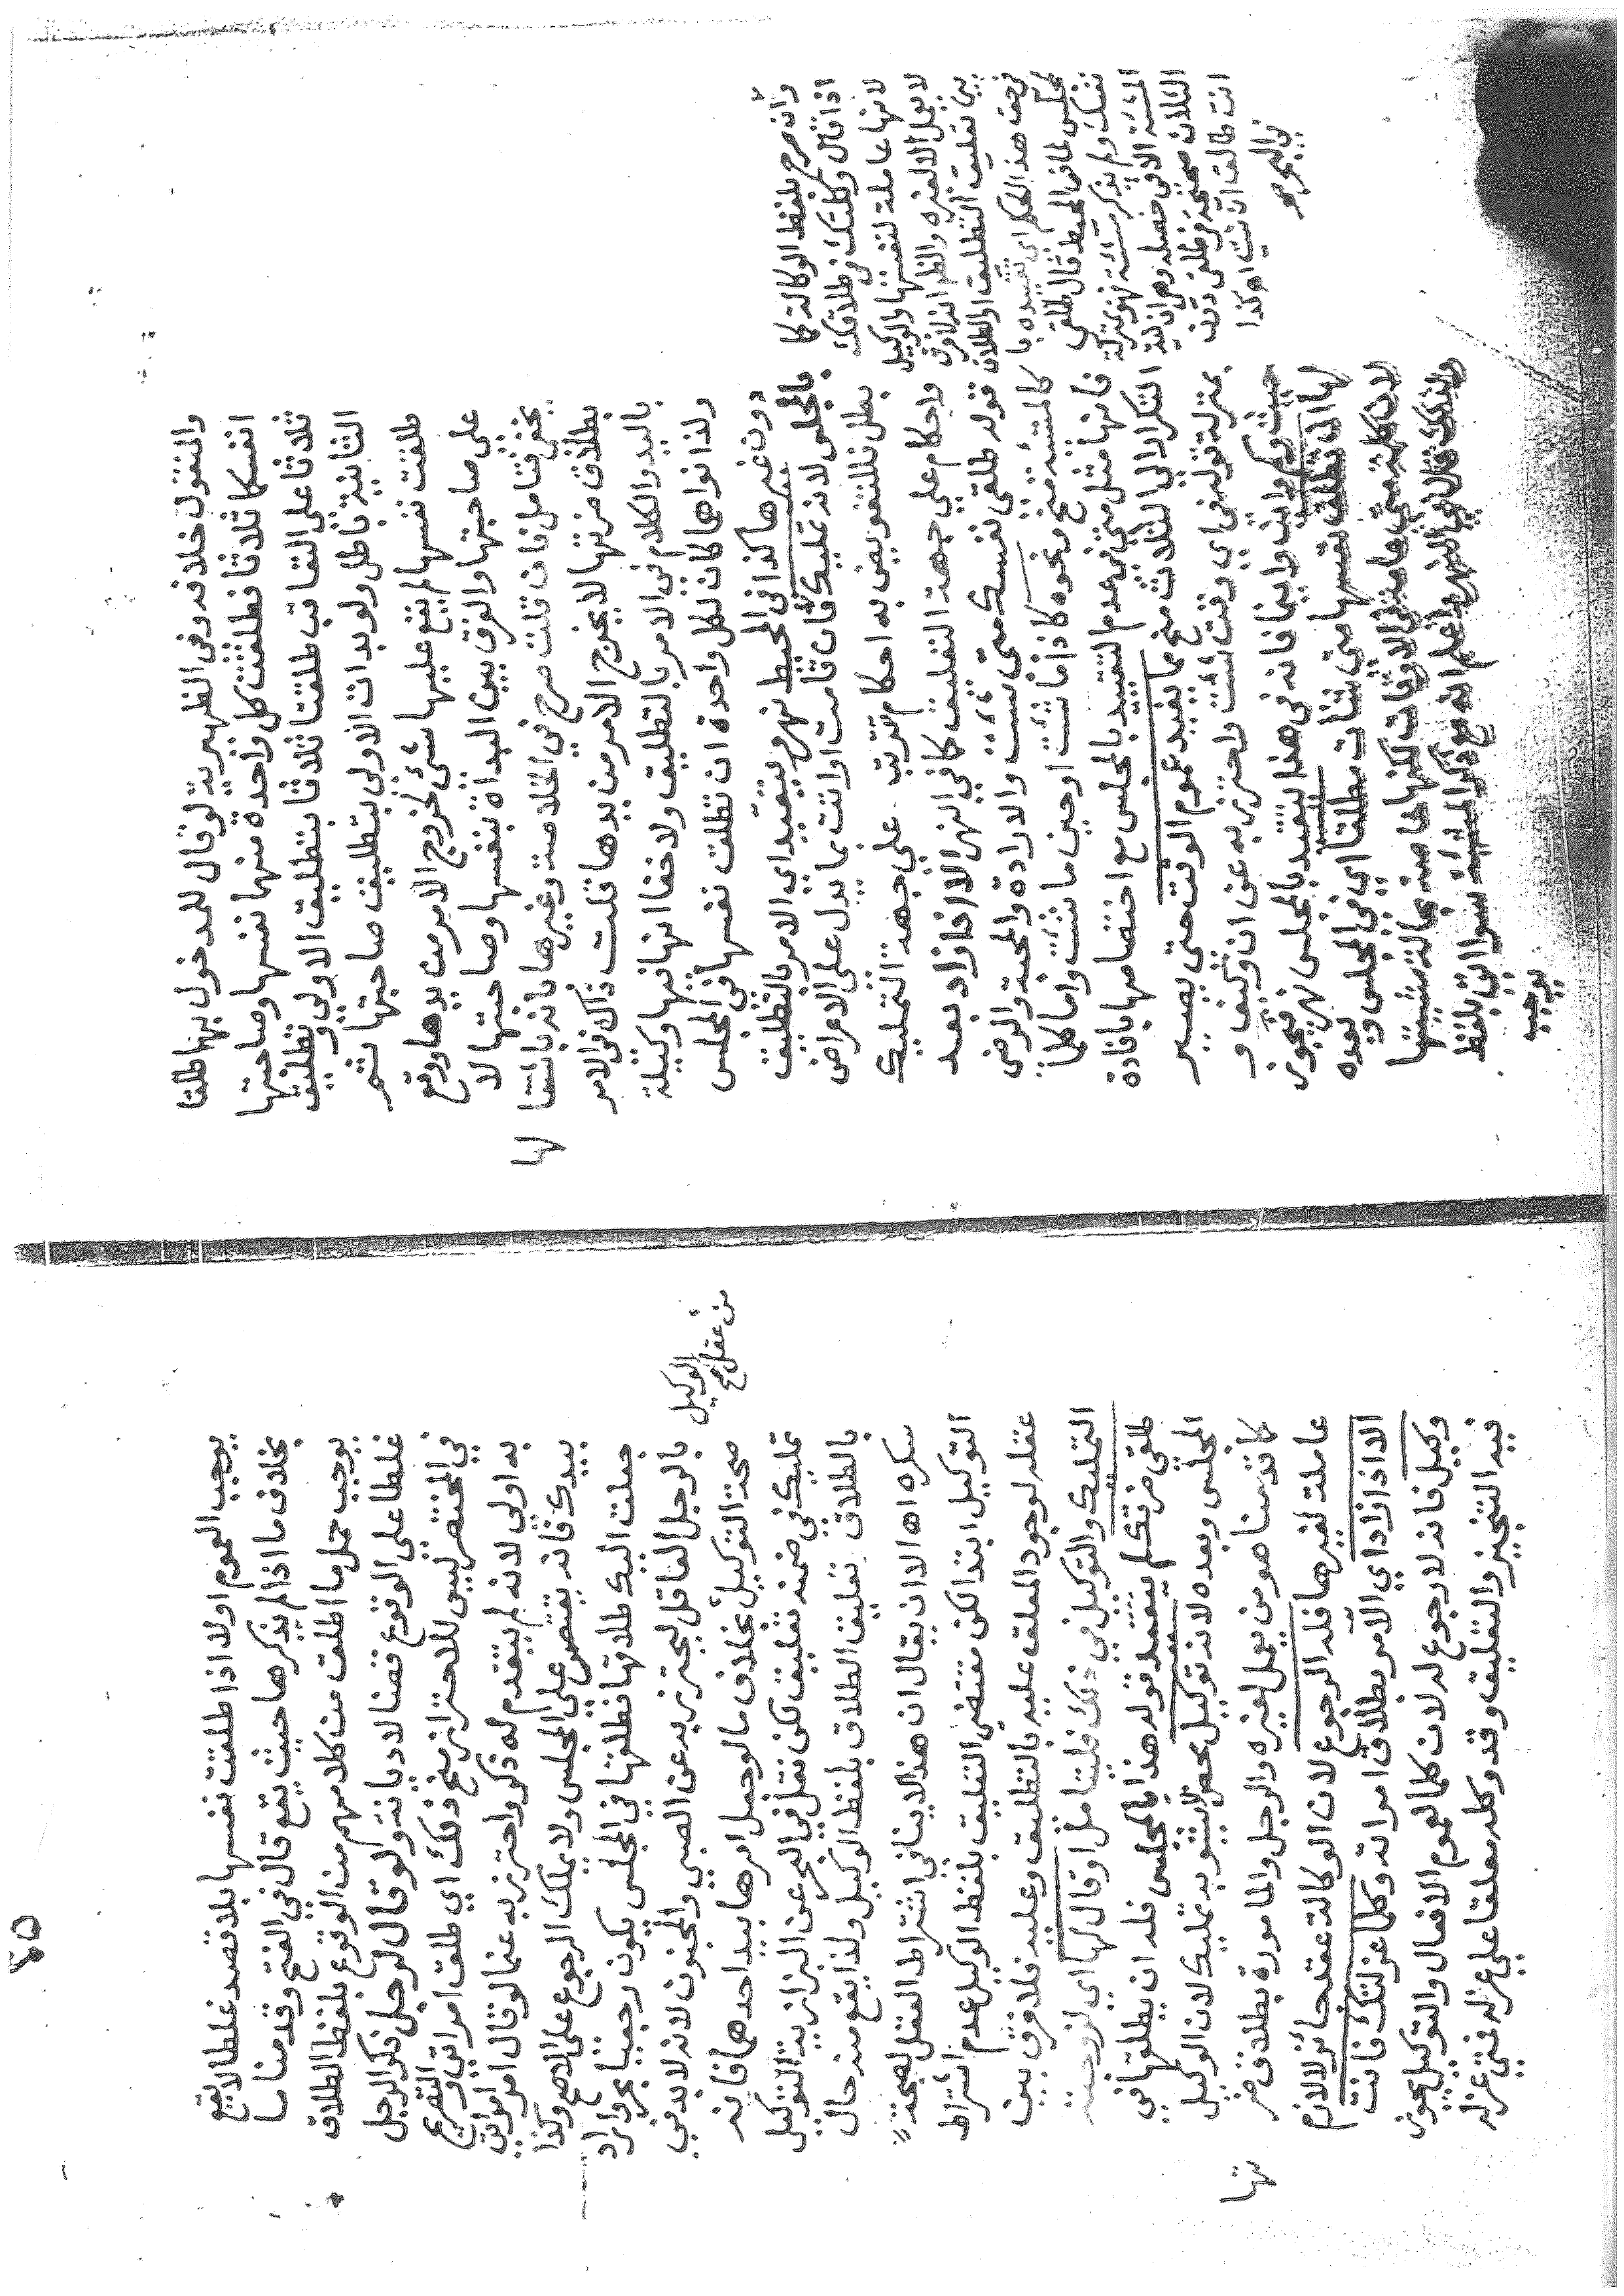 والمنقول خلافه وفي الظهيرية لو قال للمدخول بها طلقا
انفسكما ثلاثا فطلقت كل واحدة منهما نفسها وصاحبتها
ثلاثا على التعاقب طلقتا ثلاثا بتطليق الاولى وتطليق
الثانية باطل ولو بدات الاولى بتطليق صاحبتها ثم
طلقت نفسها لم يقع عليها شئ لخروج الامر من يدها ووقع
على صاحبتها والفرق بين البداة بنفسها وصاحبتها لا
يخفى فتامل فان قلت صرح في الخلاصة وغيرها بانه باشتغا
لها
بطلاق ضرتها لا يخرج الامر من يدها قلت ذاك في الامر
باليد والكلام في الامر بالتطليق ولا خفا انها فيها وكيلة
ولذا نواها كان لكل واحدة ان تطلق نفسها في المجلس
دون غيرها كذا في المحيط نهر ويتقيد اي الامر بالتطليق
بالمجلس لانه تمليك فان قامت او اتت بما يدل على الاعراض
بطل فللتفويض به احكام تترتب على جهة التمليك
واحكام على جهة التعليق كما في النهر الا اذا زاد بعد
قوله طلقي نفسك متى شئت والارادة والمحبة والرضى
كالمشيئة منح ونحوه كاذا ما شئت او حين ما شئت واما كلما
فانها مثل متى في عدم التقييد بالمجلس مع اختصاصها بافادة
التكرار الى الثلاث منح مما يفيد عموم الوقت حتى يصير
بمنزلة قوله في اي وقت شئت واحترز به عن ان وكيف و
حيث وكم واين واينما فانه في هذا يتقيد بالمجلس نهر فيجوز
لها ان تطلق نفسها متى شات مطلقا اي في المجلس وبعده
لان كلمة متى عامة في الاوقات
واعلم ان ذكر المشيئة سوا اتى بلفظ
يوجب
وان صرح بلفظ الوكالة كما
اذا قال وكلتك في طلاقك
لانها عاملة لنفسها والوكيل
لا يعمل الا لغيره والظاهر انه لا فرق
بين تعليق التطليق او الطلاق
في حق هذا الحكم اي تقييده با
لمجلس لما في المحيط قال طلقي
نفسك ولم يذكر مشيئة فهو بمنزلة
المشيئة الا في خصلة وهي ان نية
الثلاث صحيحة في طلقي دون
انت طالق ان شئت اه كذا
في البحر
٤٥
يوجب العموم او لا اذا طلقت نفسها بلا قصد غلطا لا يقع
بخلاف ما اذا لم يذكرها حيث يقع قال في الفتح وقد قدمنا ما
يوجب حمل ما اطلق من كلامهم من الوقوع بلفظ الطلاق
غلطا على الوقوع قضا لا ديانة ولو قال لرجل ذكر الرجل
في المختصر ليس للاحتراز منح ذلك اي طلق امراتي والتفريع
به اولى لانه لم يتقدم له ذكر واحترز به عما لو قال امر امراتي
بيدك فانه يقتصر على المجلس ولا يملك الرجوع على الاصح وكذا
جعلت اليك طلاقها فطلقها في المجلس يكون رجعيا بحر واراد
بالرجل العاقل ليحترز به عن الصبي والمجنون لانه لا بد في
الوكيل
من عقل صح
صحة التوكيل بخلاف ما لو جعل امرها بيد احدهما فانه
تمليك في ضمنه تعليق لكن نقل في البحر عن البزازية التوكيل
بالطلاق تعليق الطلاق بلفظ الوكيل ولذا يقع منه حال
سكره اه الا ان يقال ان هذا لا ينافي اشتراط العقل لصحة
التوكيل ابتدا لكن مقتضى التعليق بلفظ الوكيل عدم اشتراط
عقله لوجود المعلق عليه بالتطليق وعليه فلا فرق بين
التمليك والتوكيل في ذلك فليتامل او قال لها اي لزوجته
طلقي ضرتك لم يتقيد قوله هذا بالمجلس فله ان يطلقها في
المجلس وبعده لانه توكيل محض لا يشوبه تمليك لان الوكيل
كما قدمنا هو من يعمل لغيره والرجل والمامورة بطلاق ضر
تها
عاملة لغيرها فله الرجوع لان الوكالة عقد جائز لا لازم
الا اذا زاد اي الامر بطلاق امراته وكلما عزلتك فانت
وكيل فانه لا رجوع له لان كلما لعموم الافعال والتوكيل يجوز
فيه التنجيز والتعليق وقد وكله معلقا على عزله فمتى عزله